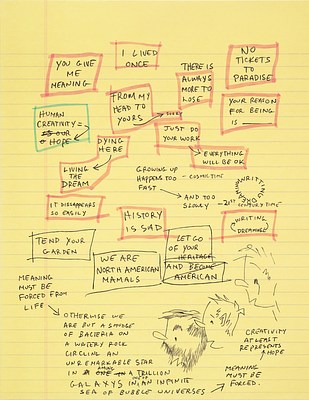 YOU GIVE
ME
MEANING
I LIVED
ONCE
THERE IS
ALWAYS
MORE TO
LOSE
NO
TICKETS
TO
PARADISE
HUMAN
CREATIVITY =
OUR
HOPE
FROM MY
HEAD TO
YOURS
YOUR REASON
FOR BEING
IS
JUST DO
YOUR WORK
DYING
HERE
EVERYTHING
WILL BE OK
LIVING
THE
DREAM
GROWING UP
HAPPENS TOO
FAST
COSMIC TIME
AND TOO
SLOWLY
21ST CENTURY TIME
WRITING
DREAMING
IT DISAPPEARS
SO EASILY
HISTORY
IS SAD
WRITING
(DREAMING)
TEND YOUR
GARDEN
WE ARE
NORTH AMERICAN
MAMALS
LET GO
OF YOUR
HERITAGE
AND BECOME
AMERICAN
MEANING
MUST BE
FORCED FROM
LIFE
OTHERWISE WE
ARE BUT A SMUDGE
OF BACTERIA ON
A WATERY ROCK
CIRCLING AN
UNREMARKABLE STAR
IN A ONE IN A TRILLION
GALAXYS IN AN INFINITE
SEA OF BUBBLE UNIVERSES
CREATIVITY
AT LEAST
REPRESENTS
HOPE
MEANING
MUST BE
FORCED.